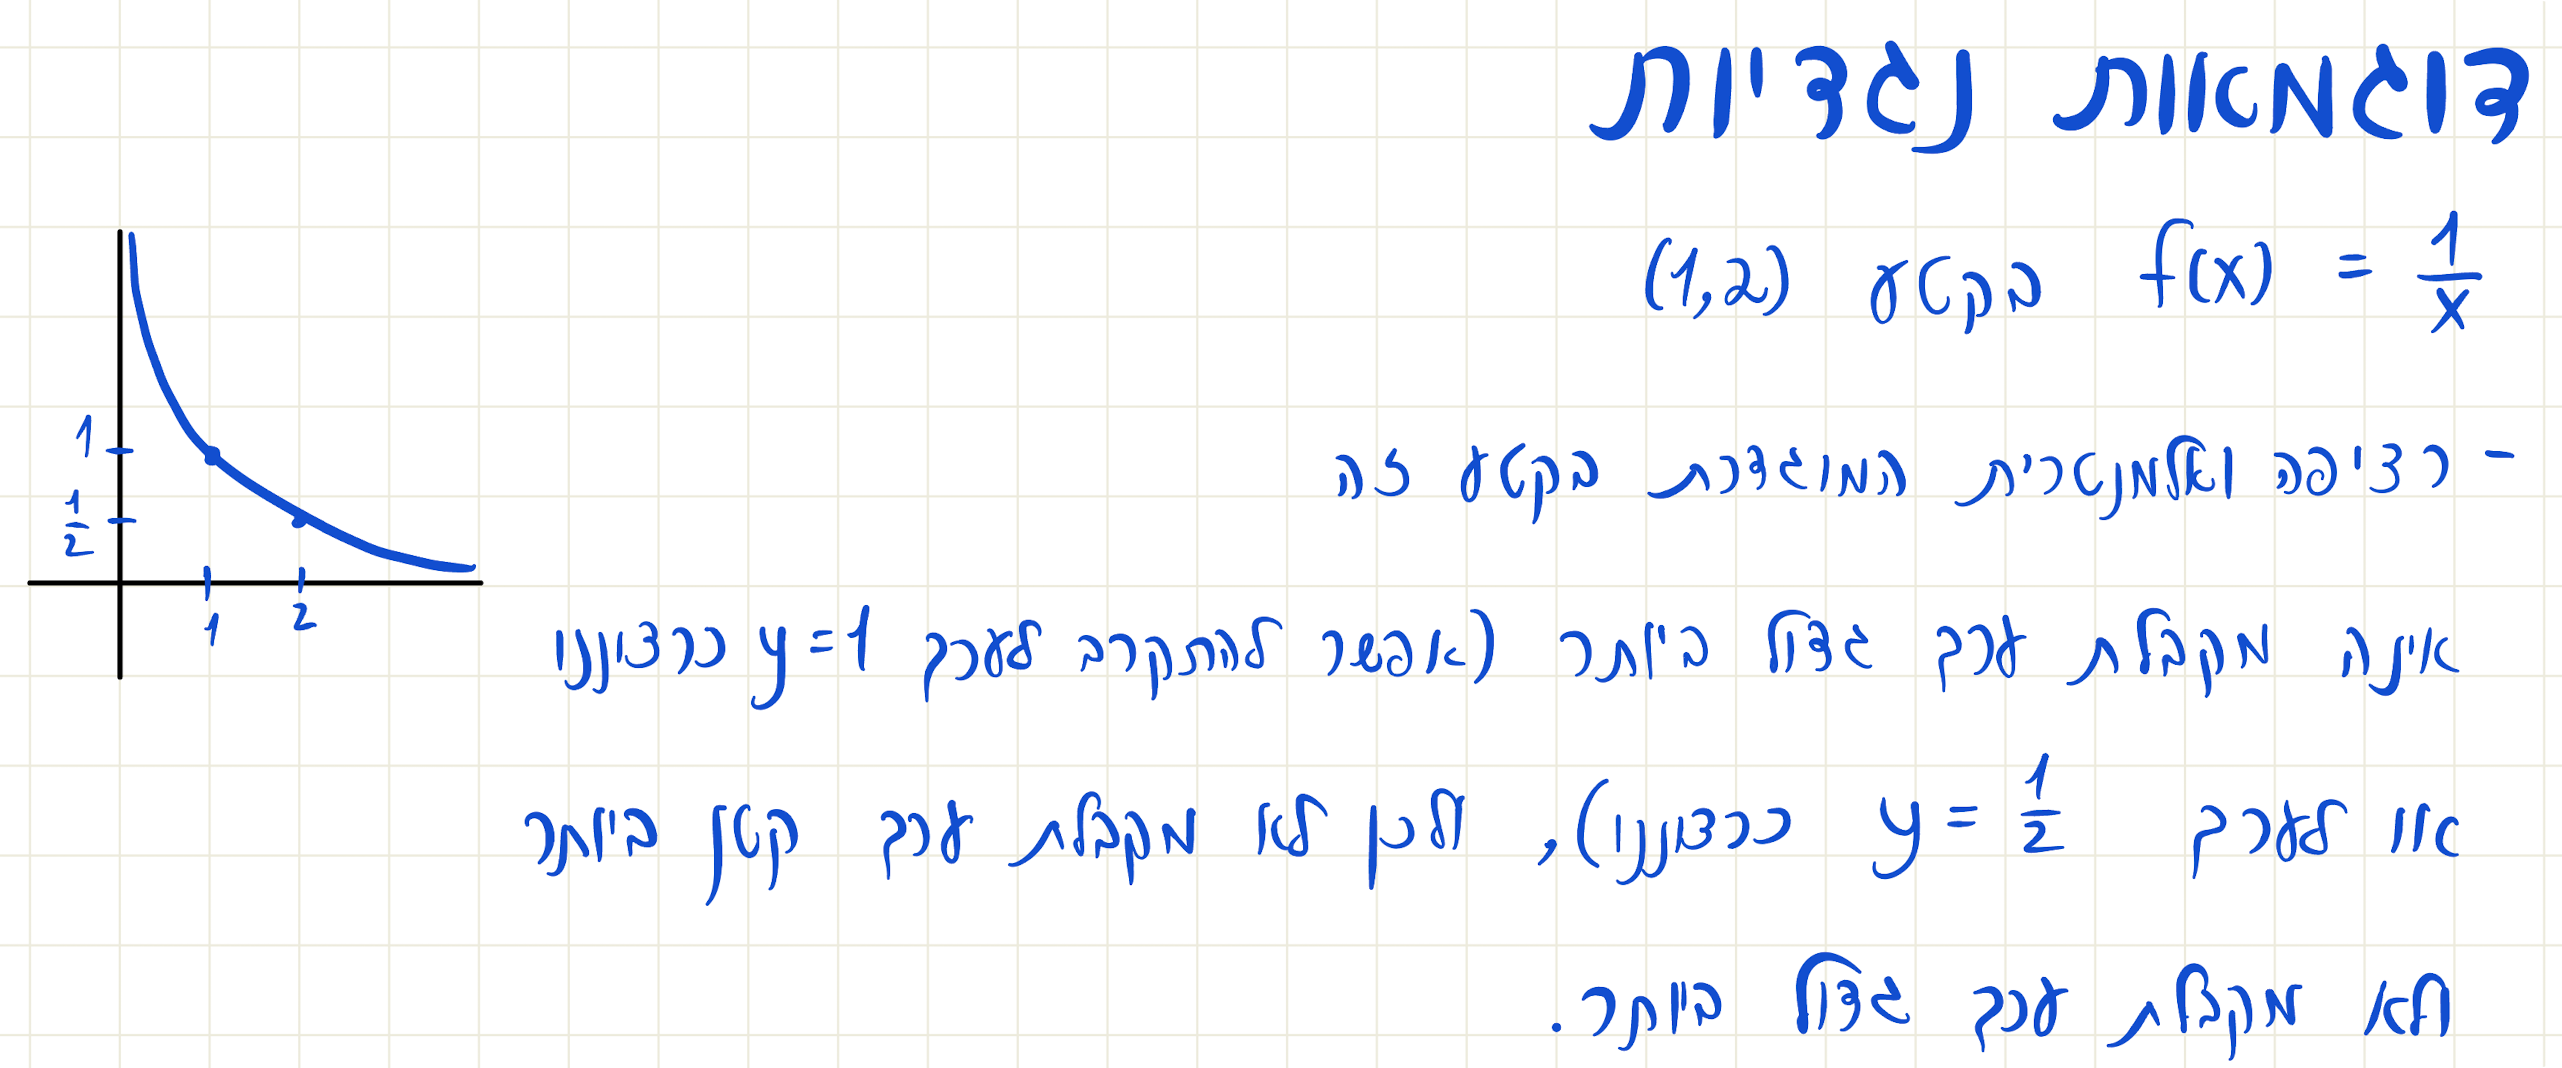 דוגמאות נגדיות
f(x) = 1/x בקטע (1,2)
- רציפה ואלמנטרית המוגדרת בקטע זה
אינה מקבלת ערך גדול ביותר (אפשר להתקרב לערך y=1 כרצוננו
או לערך y = 1/2 כרצוננו), ולכן לא מקבלת ערך קטן ביותר
ולא מקבלת ערך גדול ביותר.
1
1/2
1 2